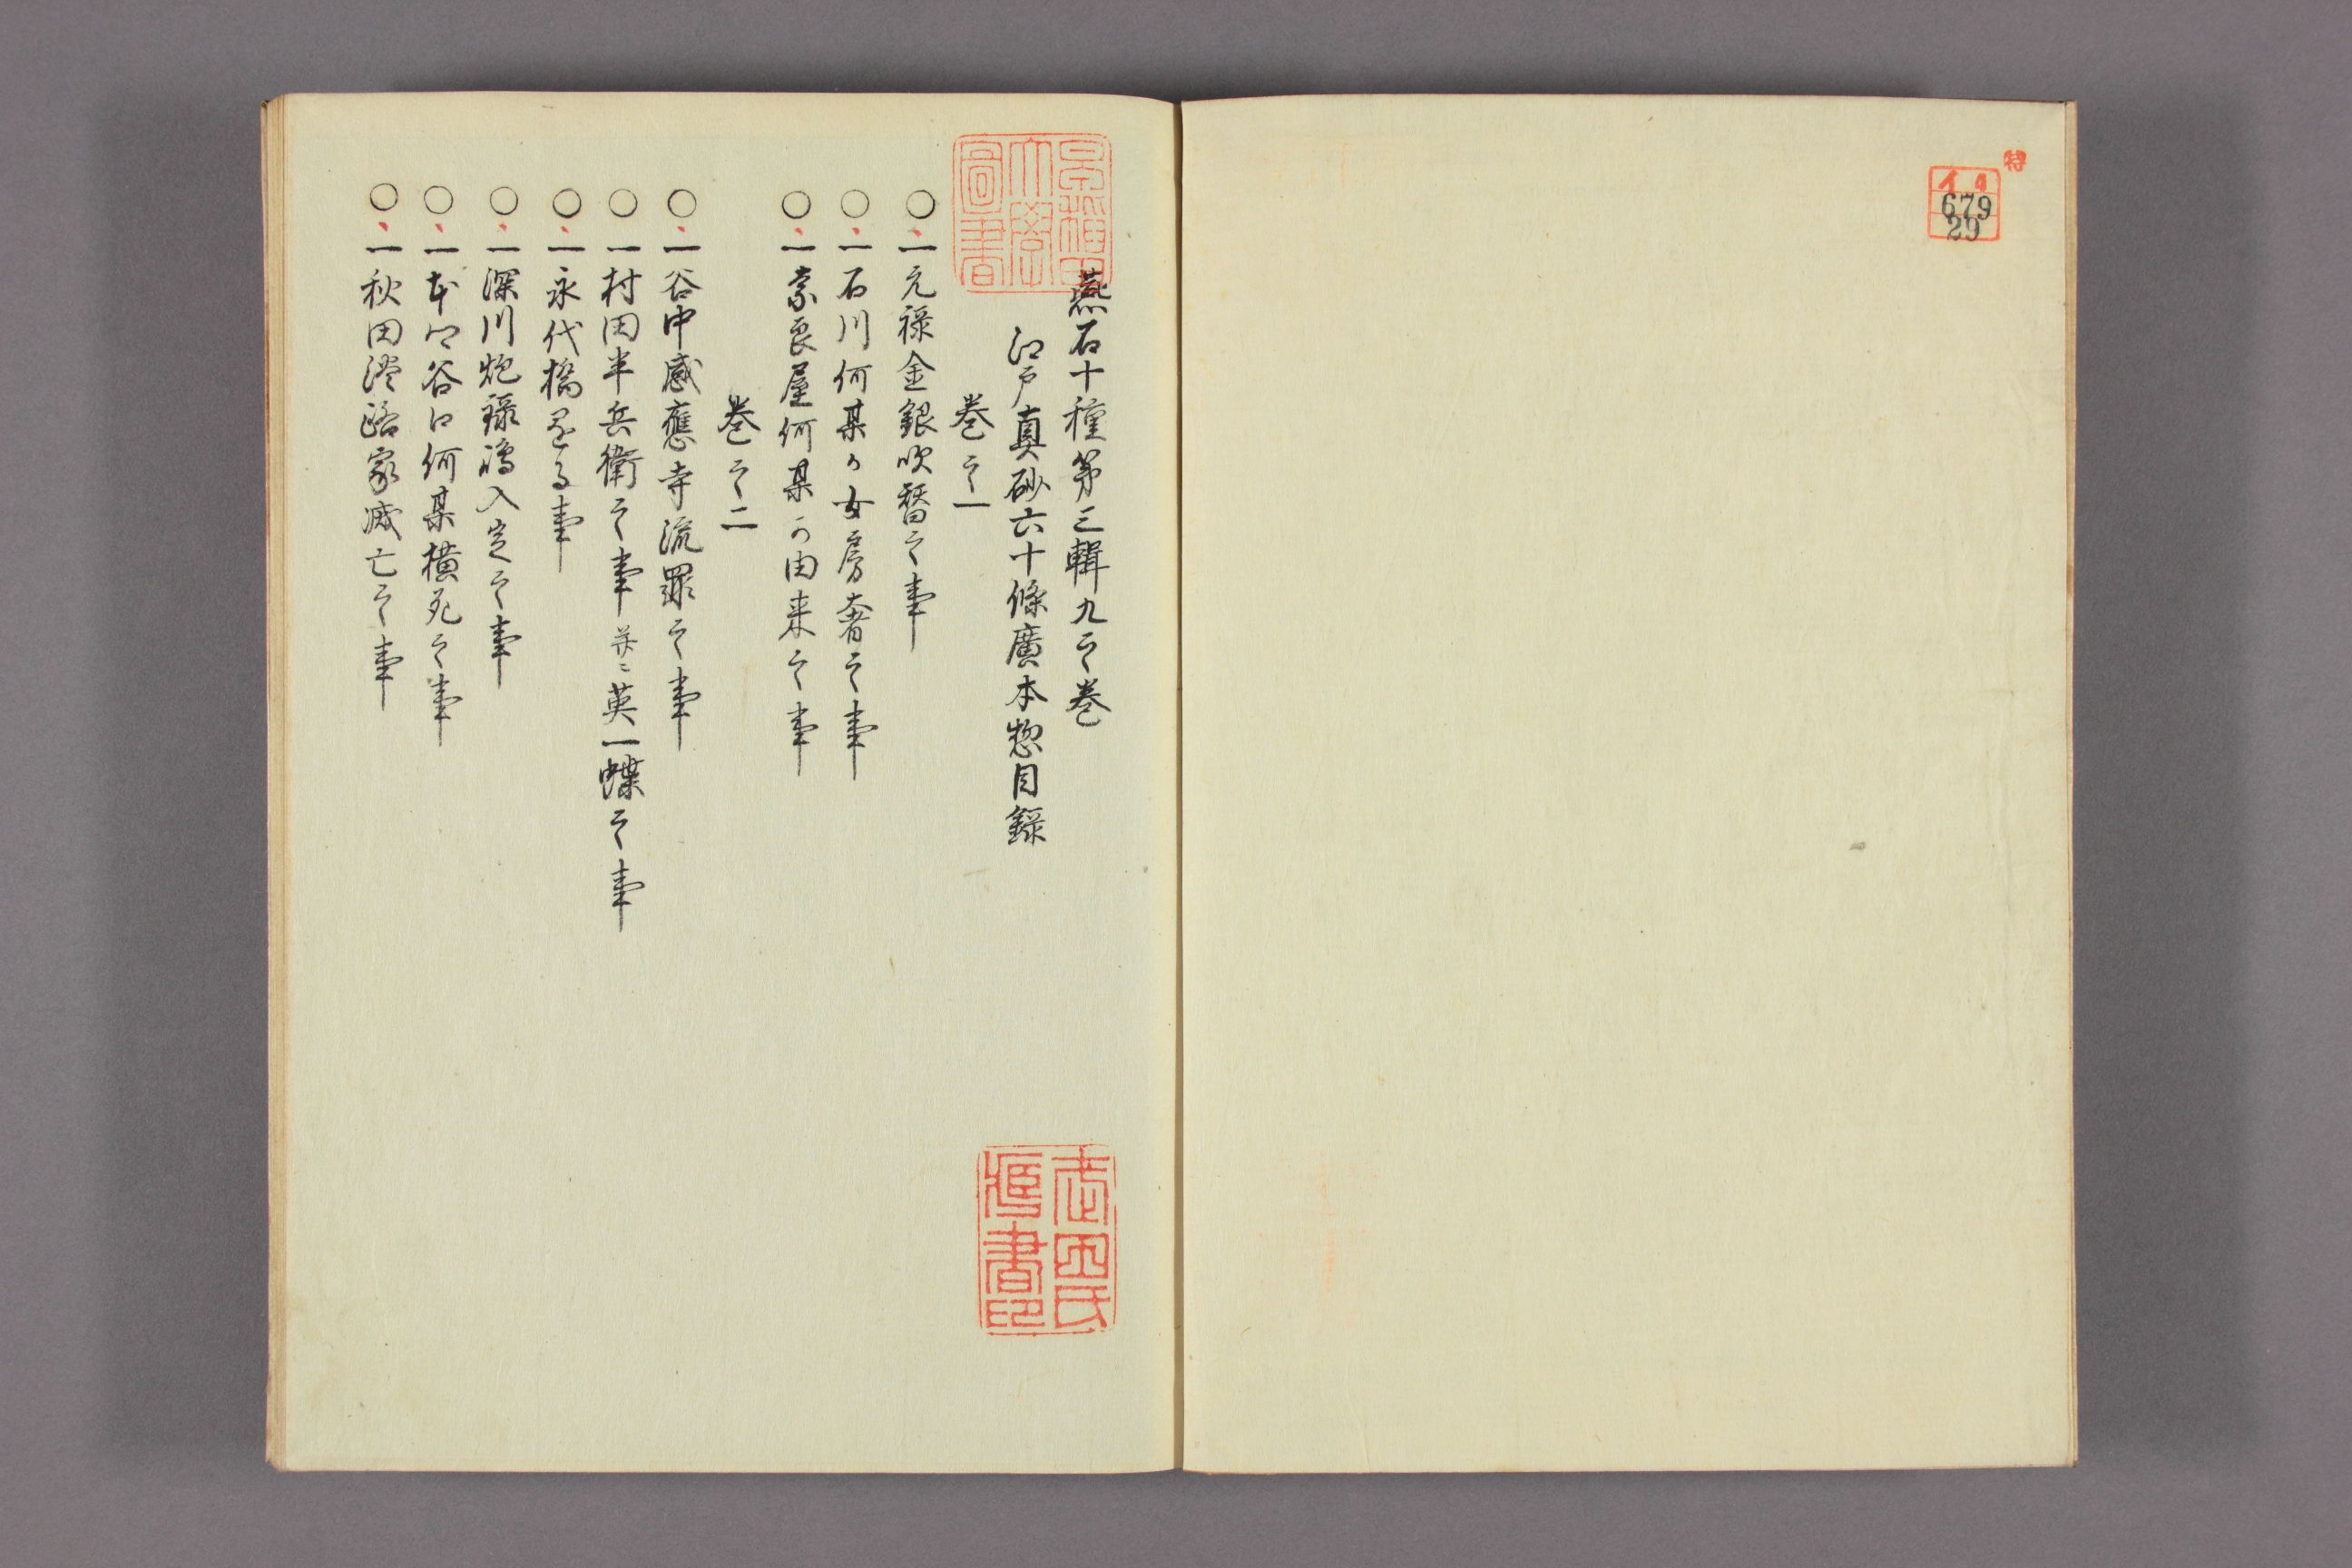 特
イ4
679
29
燕石十種第三輯九之巻
江戸真砂六十條廣本惣目録
巻之一
〇一元禄金銀吹替之事
〇一石川何某か女房奢之事
〇一奈良屋何某か由来之事
巻之二
〇一谷中感應寺流罪之事
〇一村田半兵衛之事並ニ英一蝶之事
〇一永代橋 る事
〇一深川炮録嶋入定之事
〇一本口谷口何某横死之事
〇一秋田淡路家滅亡之事
早稲田大學圖書
志田氏蔵書印